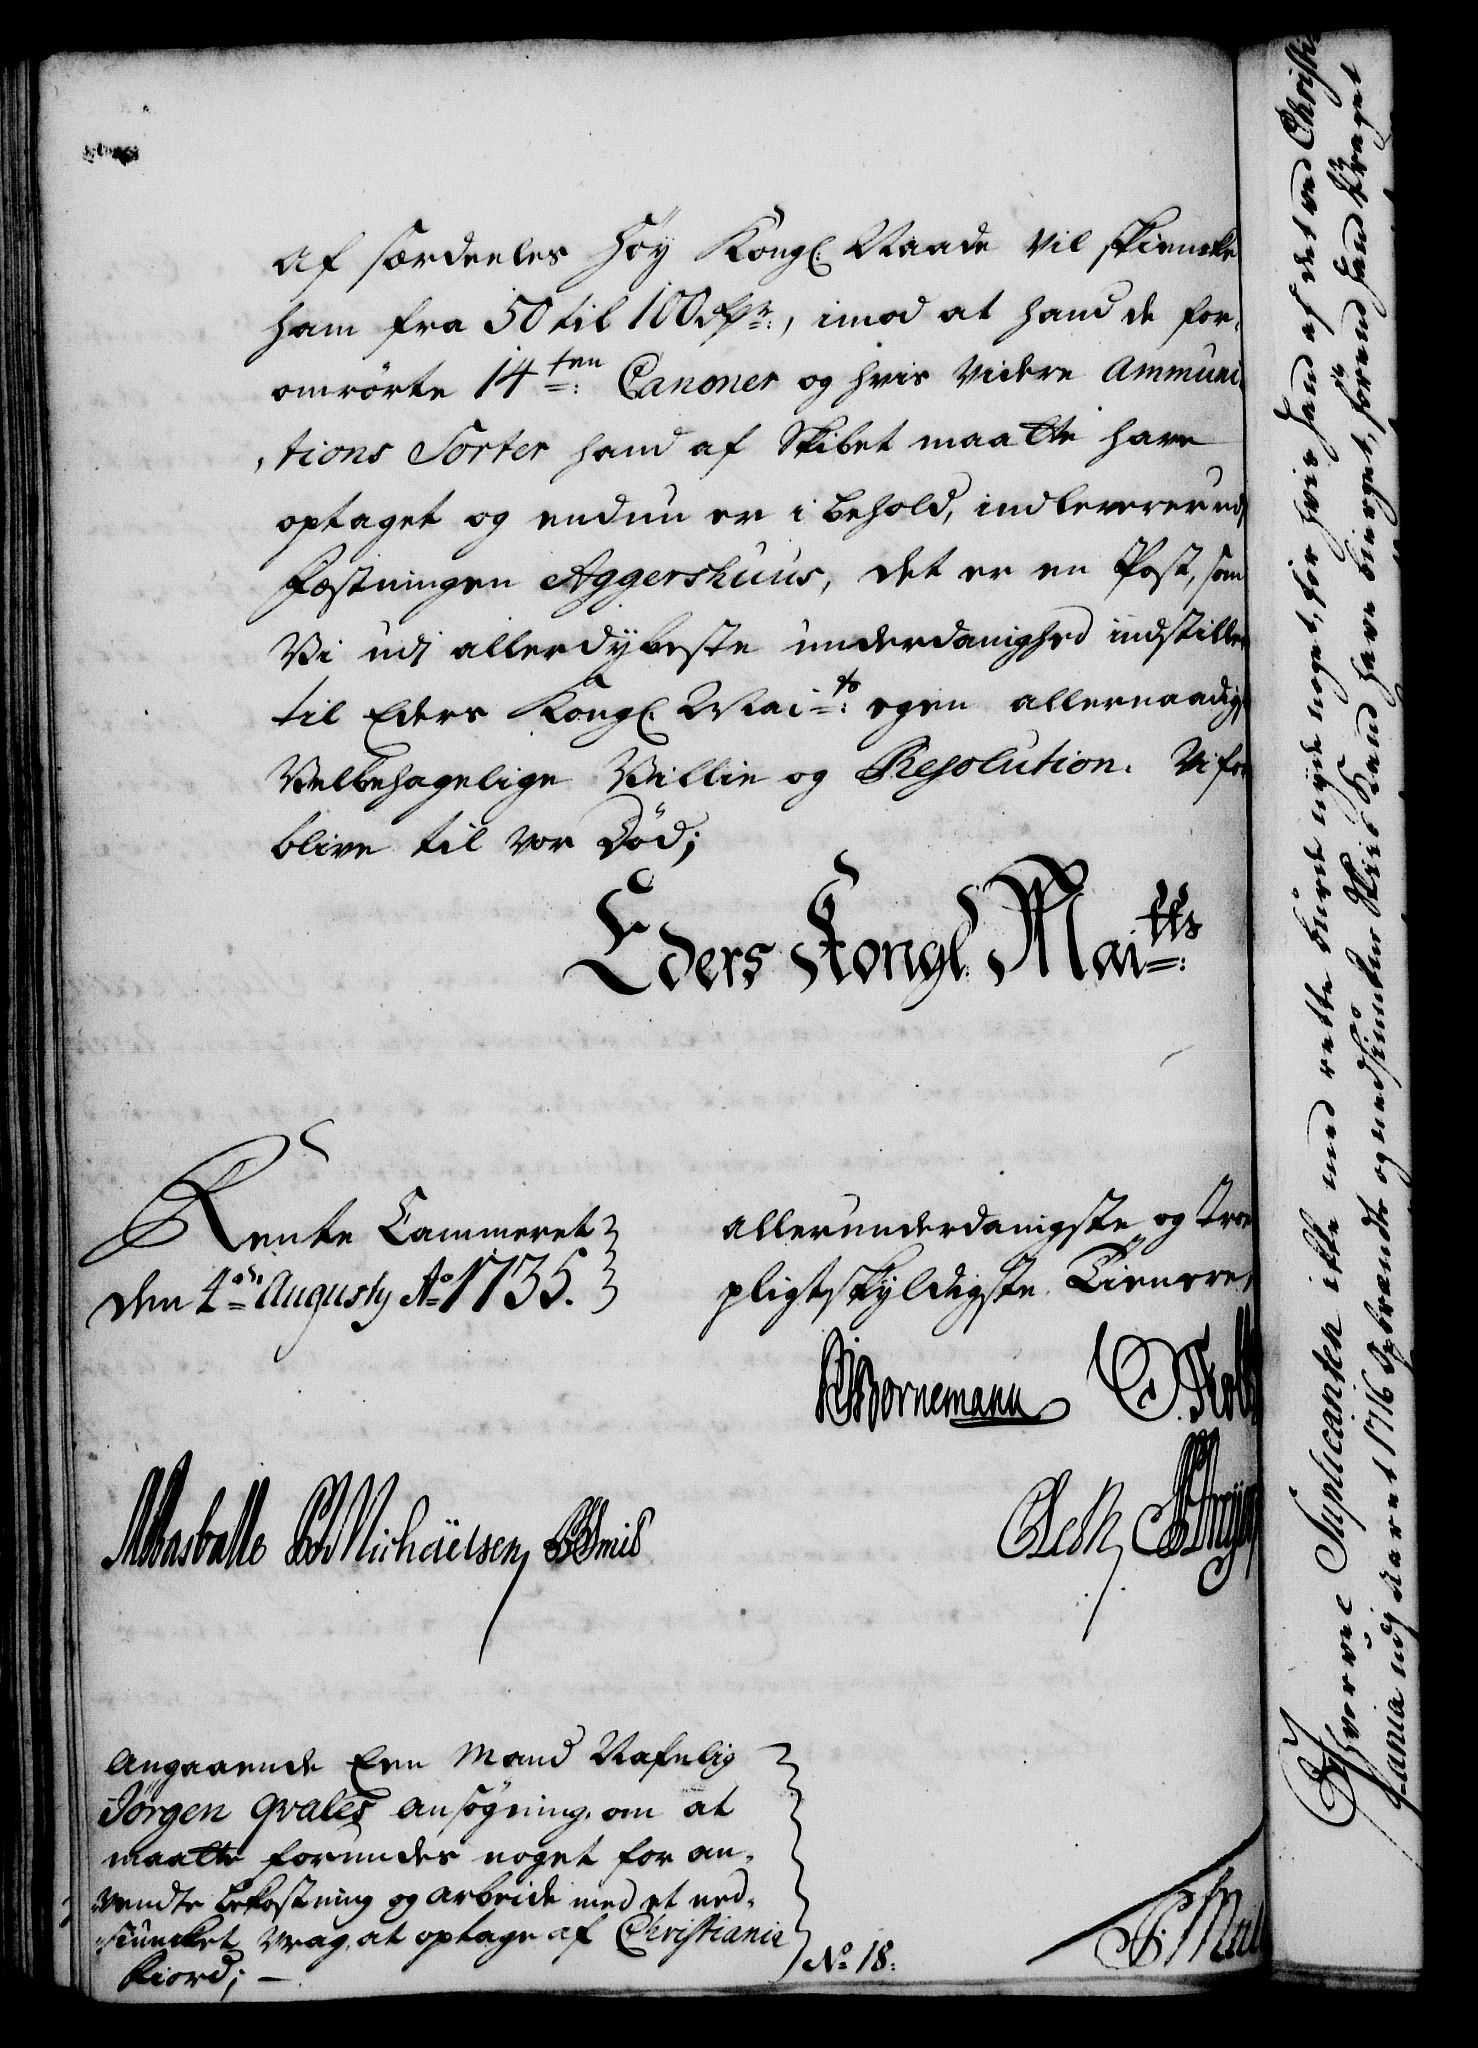 af særdeeles Høy Kongl. Naade vil skiencke
ham fra 50 til 100 rdr:, imod at hand de for,
omrørte 14 ten Canoner og hvis videre Ammuni
,tions Sorter hand af Skibet maatte have
optaget og endnu er i behold, indleverer ved
Fæstningen Aggershuus, det er en Post, som
Vi udj allerdybeste underdanighed indstiller
til Eders Kongl. Mai ts: egen allernaadig,
Velbehagelige Villie og Resolution. Vi for
blive til vor Død;
Eders Kongl. Mai tts:
Rente Cammeret
den 4 de Augustj Ao 1735.
allerunderdanigste og troe
pligtskyldigste Tienere,
Bornemann
Michäelsen
Angaaende Een Mand Nafnlig
Jørgen Qvales ansøgning, om at
maatte forundes noget for an,
vendte bekostning og arbeide med et ned,
siuncket Vrag, at optage af Christiania
Fiord; —
No 18:
Hvorvel Suplicanten icke med rette burde nyde noget, for hvis hand af det ved Christi
jania udj Aaret 1716 opbrændte og nedsiunckne Skib kand have bierget, forend hand Vraget